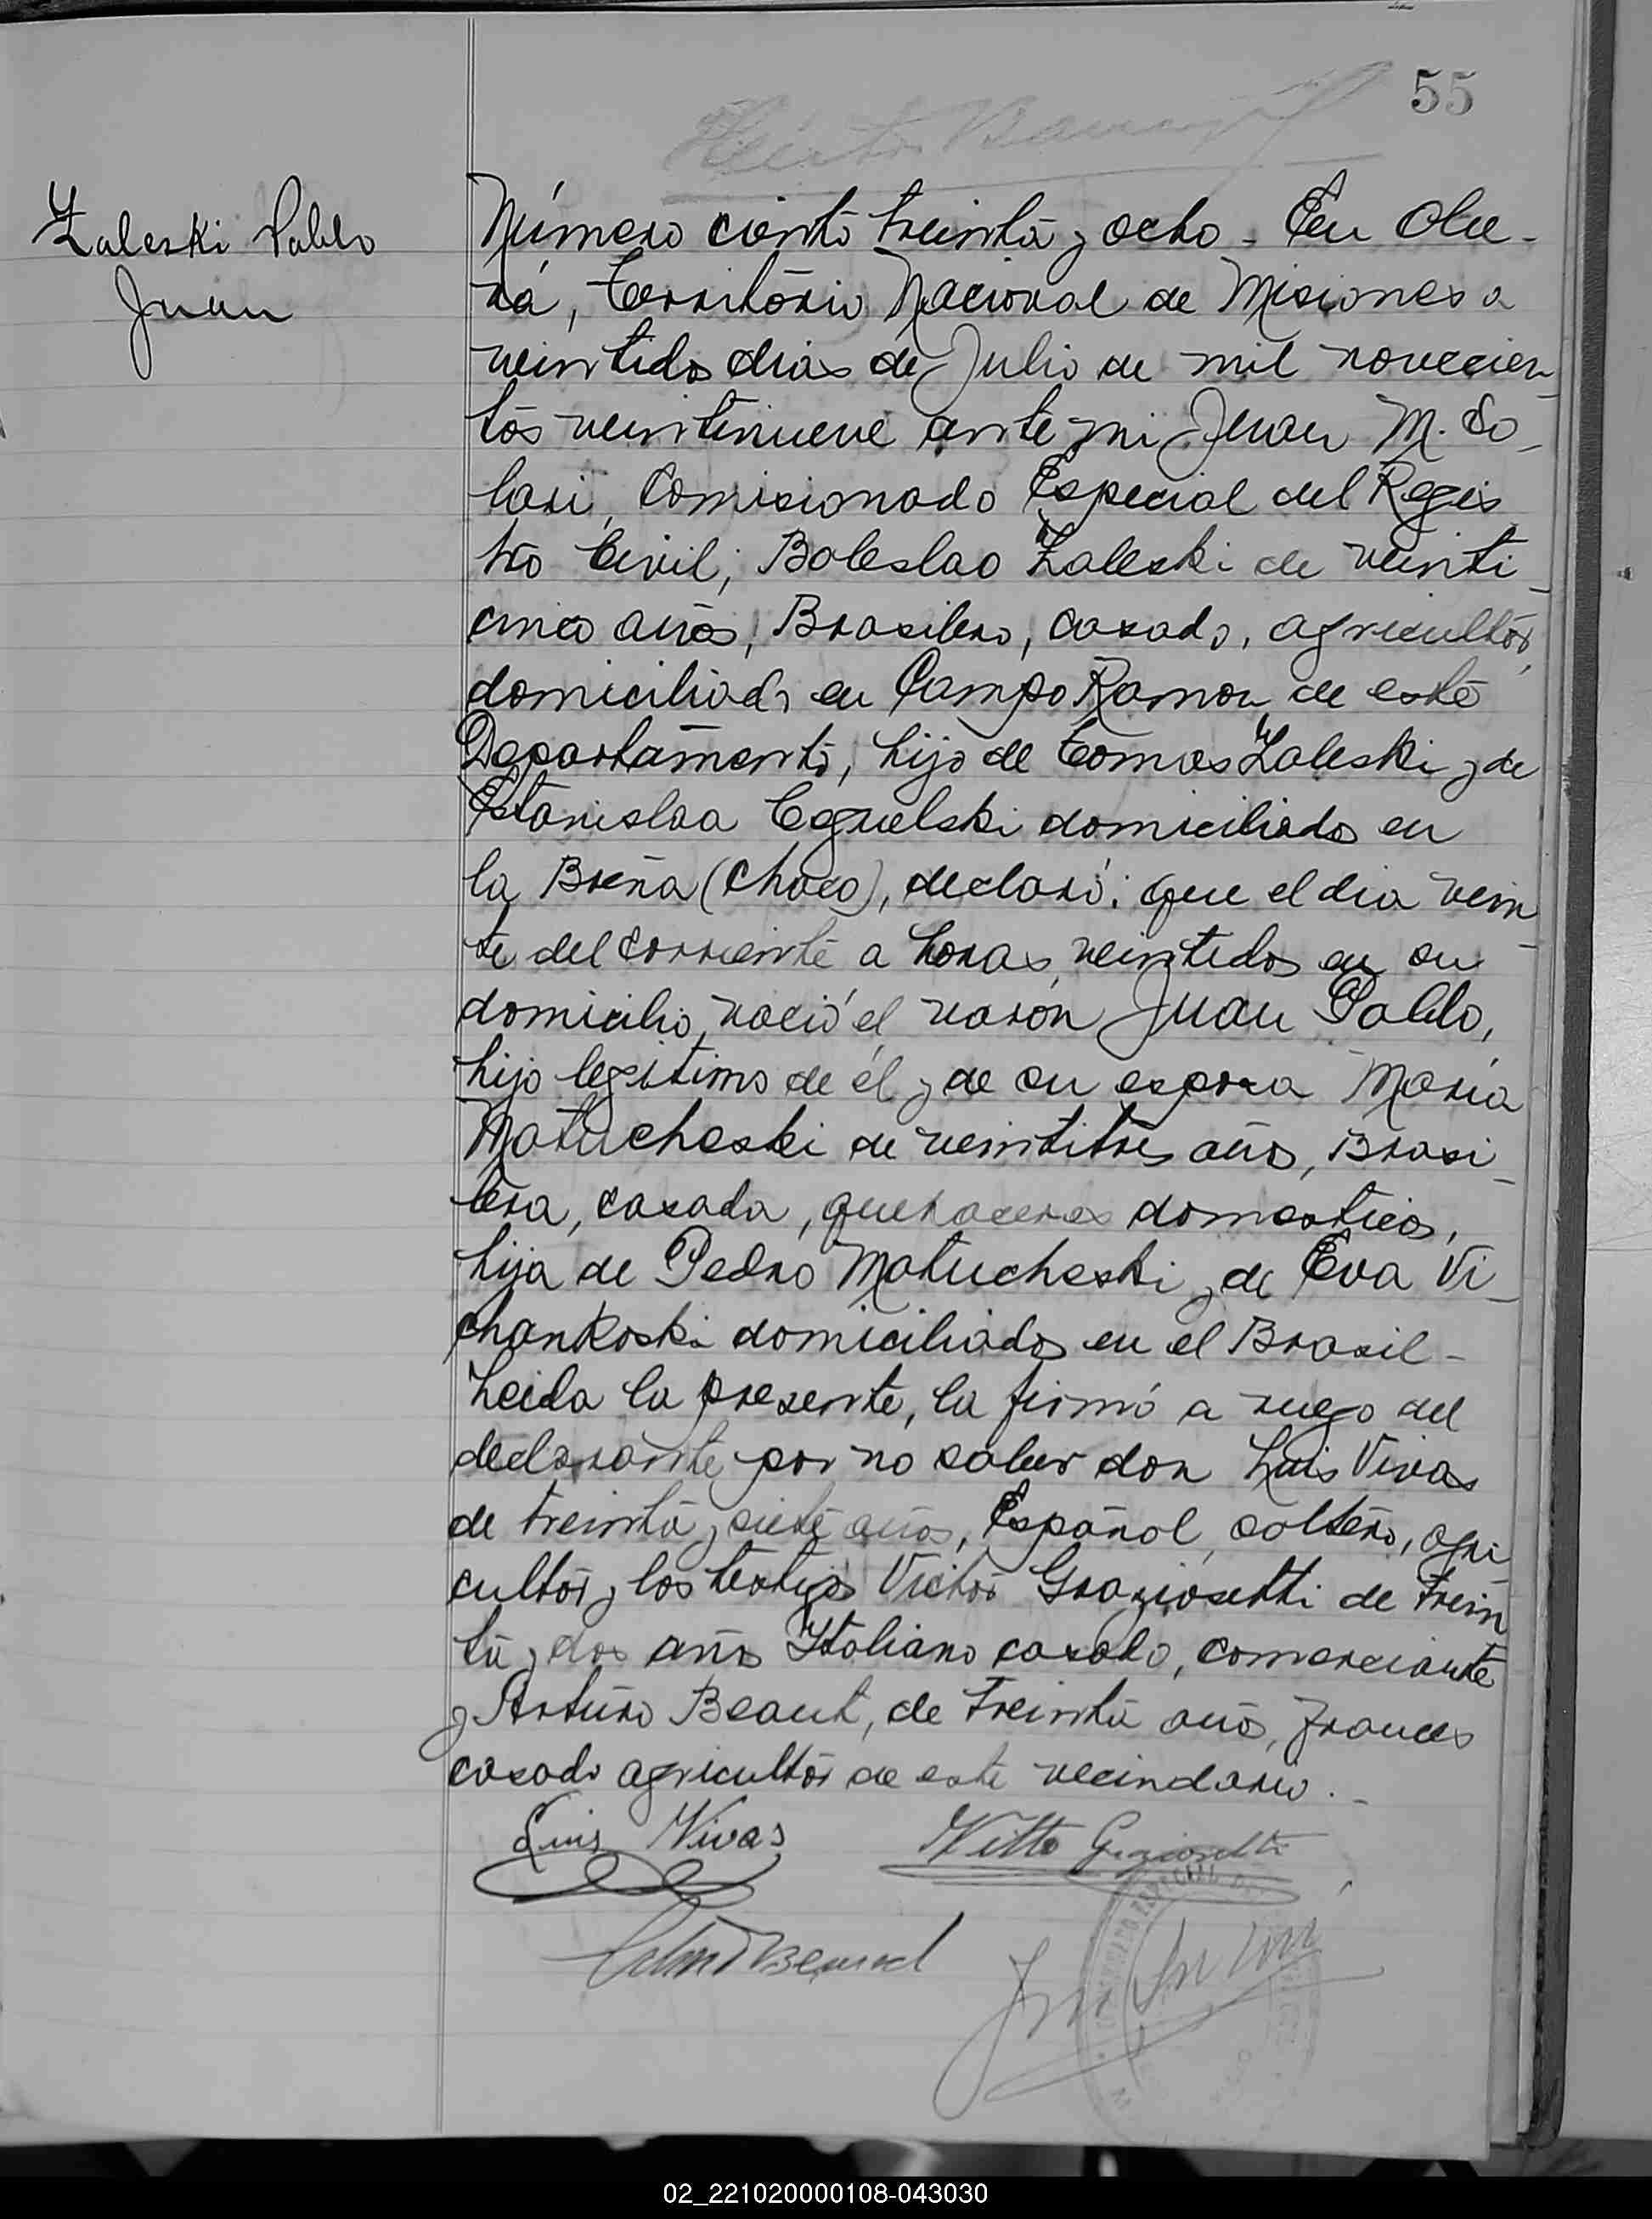 55
Zaleski Pablo
Juan
Número ciento treinta y ocho - En Obe-
rá, Territorio Nacional de Misiones a
veintidos dias de Julio de mil novecien-
tos veintinueve ante mi Juan M. So-
lari, Comisionado Especial del Regis
tro Civil; Boleslao Zaleski de veinti-
cinco años, Brasilero, casado, agricultor,
domiciliado en Campo Ramon de este
Departamento, hijo de Tomas Zaleski y de
Estanislaa Cguelski domiciliados en
la Breña (Chaco), declaró: que el dia vein-
te del corriente a horas veintidos en su
domicilio, nació el varón Juan Pablo,
hijo legitimo de él y de su esposa Maria
Matucheski de veintitres años, Brasi-
lera, casada, quehaceres domesticos,
hija de Pedro Matucheski y de Eva Vi-
chankoski domiciliados en el Brasil -
Leida la presente, la firmó a ruego del
declarante por no saber don Luis Vivas
de treinta y siete años, Español, soltero, agri
cultor y los testigos Victor Graziosetti de trein
ta y dos años Italiano casado, comerciante
y Arturo Beaut, de treinta años, frances
casado agricultor de este vecindario.-
Luis Vivas
Vitto Graziosetti
02_221020000108-043030